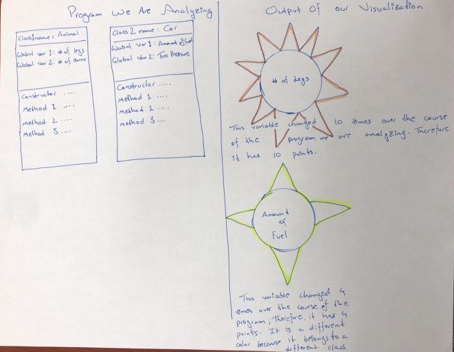 Program We Are Analyzing
Class1 name: Animal
Global Var 1: # of legs
Global Var 2: # of
Constructor ....
Method 1 ....
Method 2 ....
Method 3 ....
Class 2 name: Car
Global Var 1: Amount of fuel
Global Var 2: Tire Pressure
Constructor ....
Method 1 ....
Method 2 ....
Method 3 ....
Output Of our Visualization
# of legs
This variable changed 10 times over the course
of the program we are analyzing. Therefore
it has 10 points.
Amount
of
Fuel
This variable changed 4
times over the course of the
program, therefore, it has 4
points. It is a different
color because it belongs to a
different class